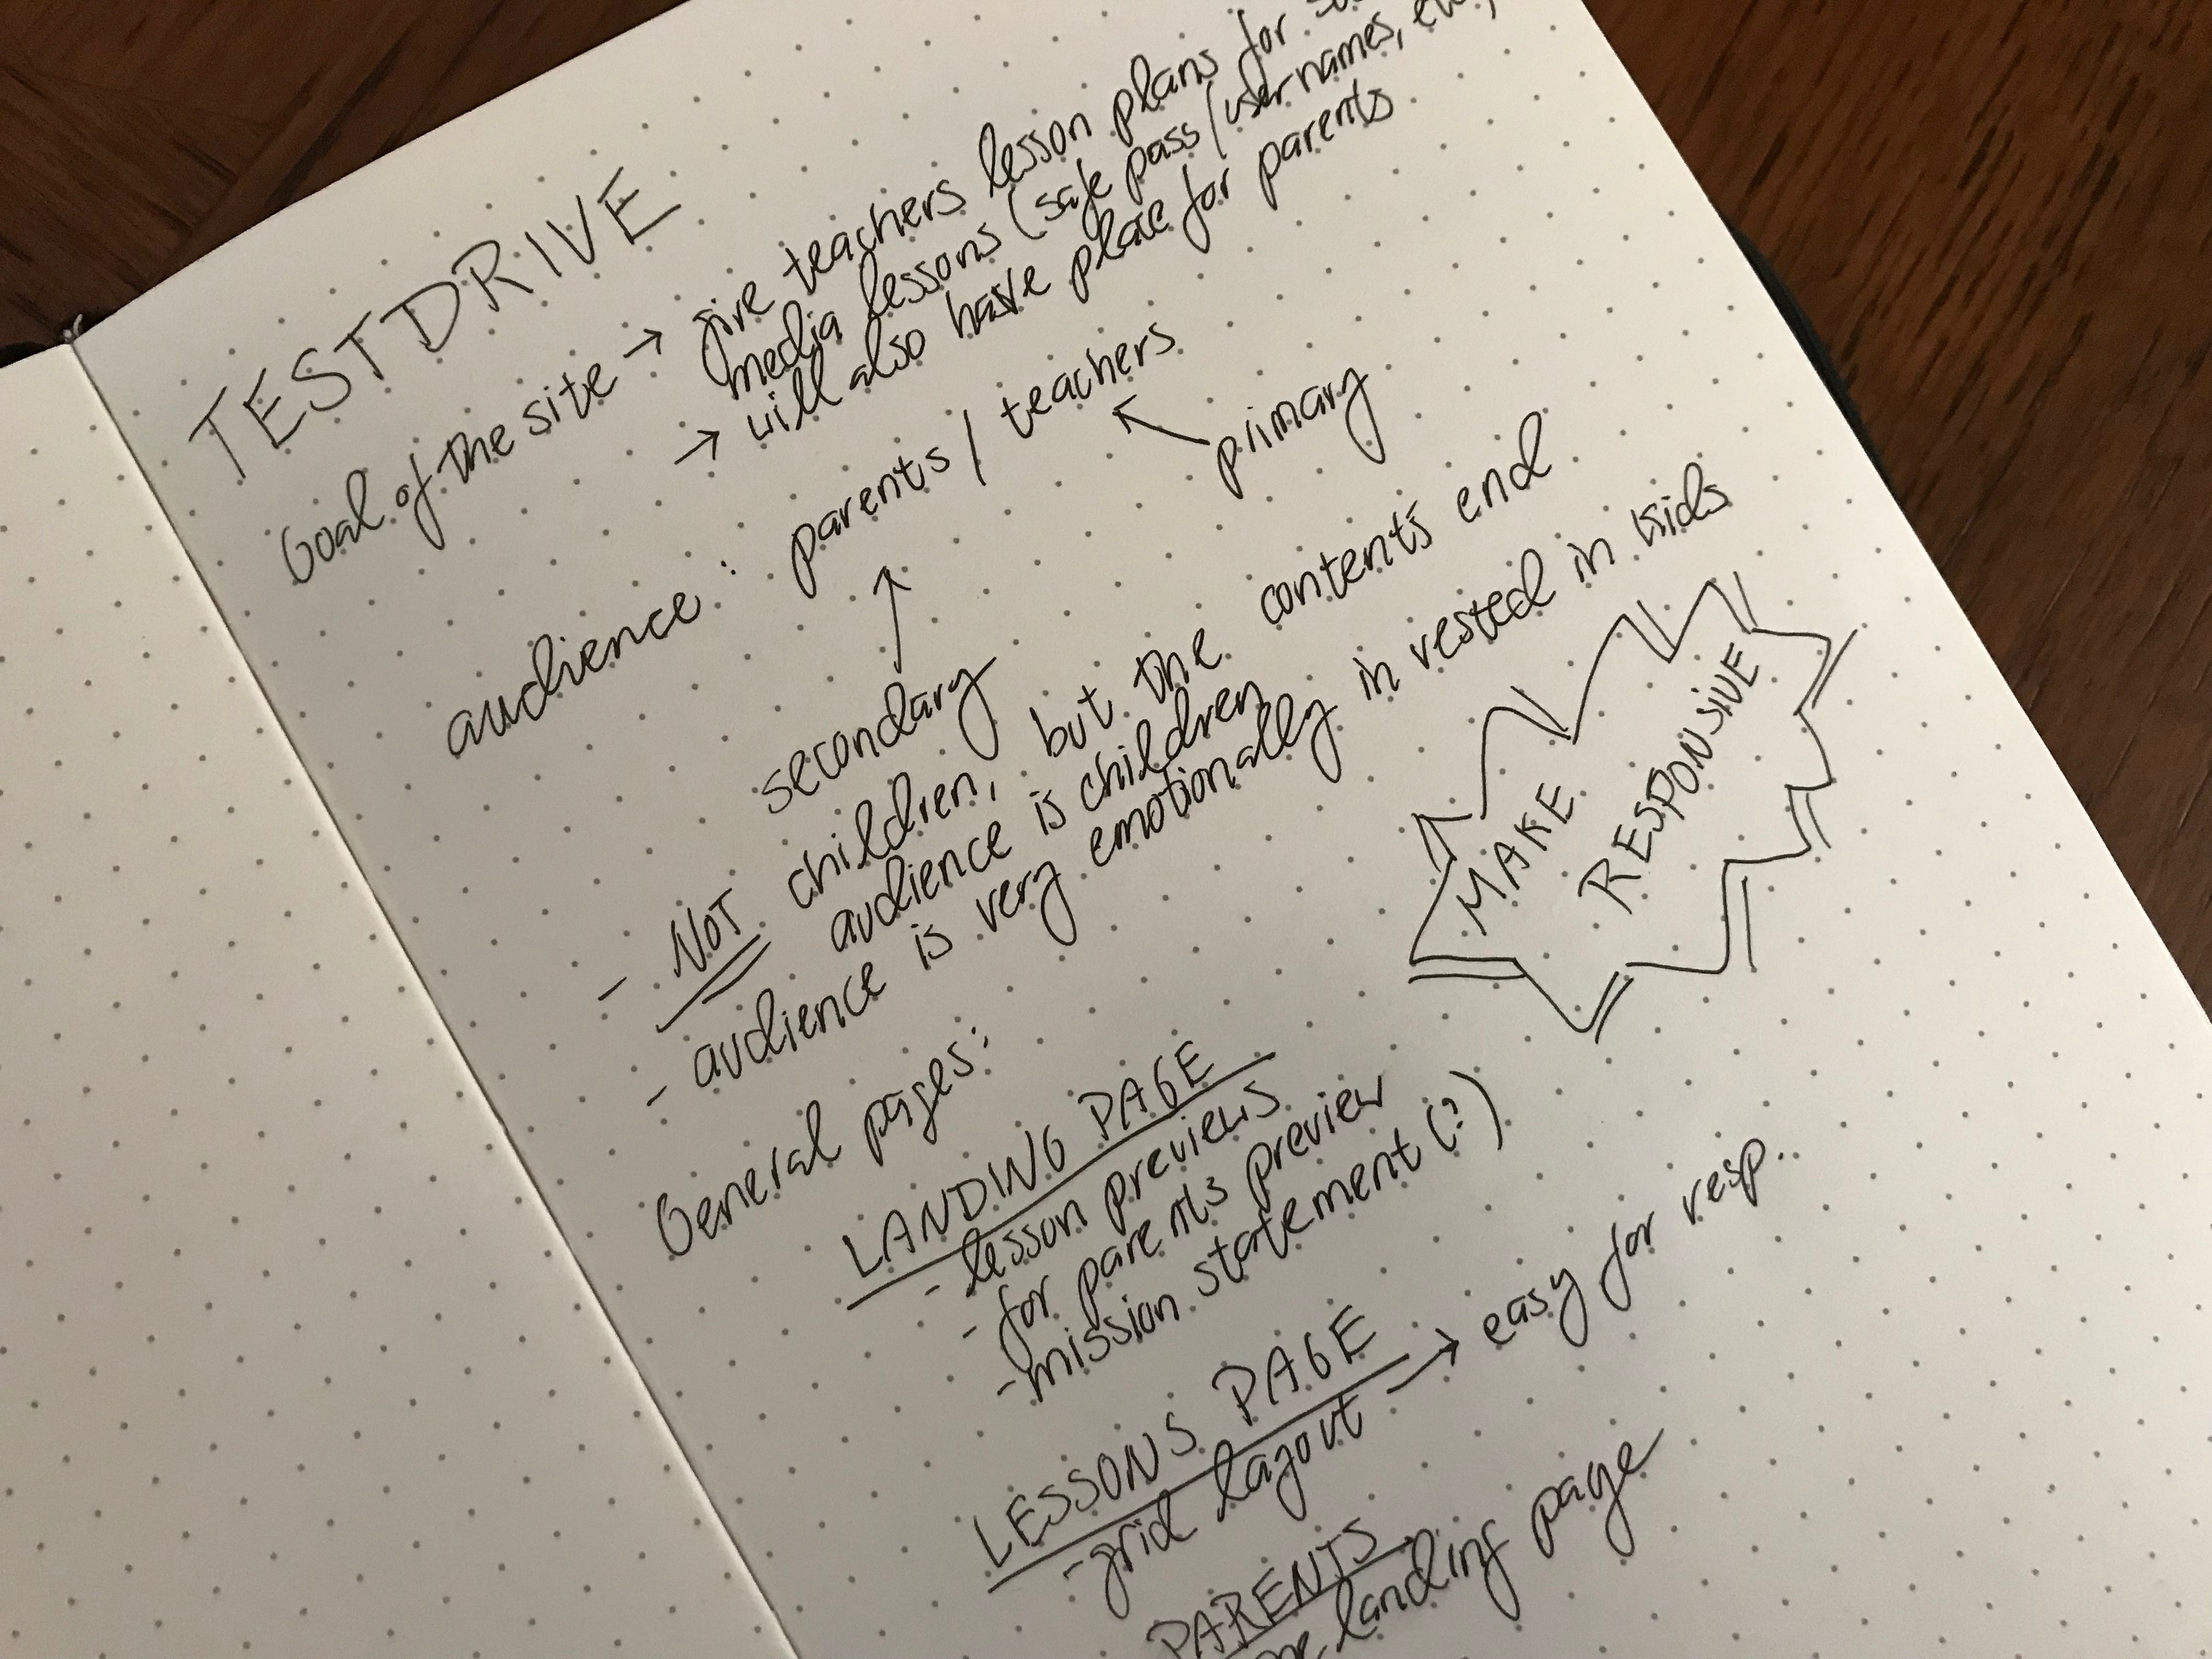 TESTDRIVE
Goal of the site → give teachers lesson plans for
media lessons (safe pass/usernames, etc)
→ will also have place for parents
audience: parents / teachers
primary
secondary
- NOT children, but the contents end
audience is children
- audience is very emotionally in vested in kids
MAKE
RESPONSIVE
General pages:
LANDING PAGE
- lesson previews
- for parents preview
- mission statement (?)
LESSONS PAGE
- grid layout → easy for resp.
PARENTS
landing page